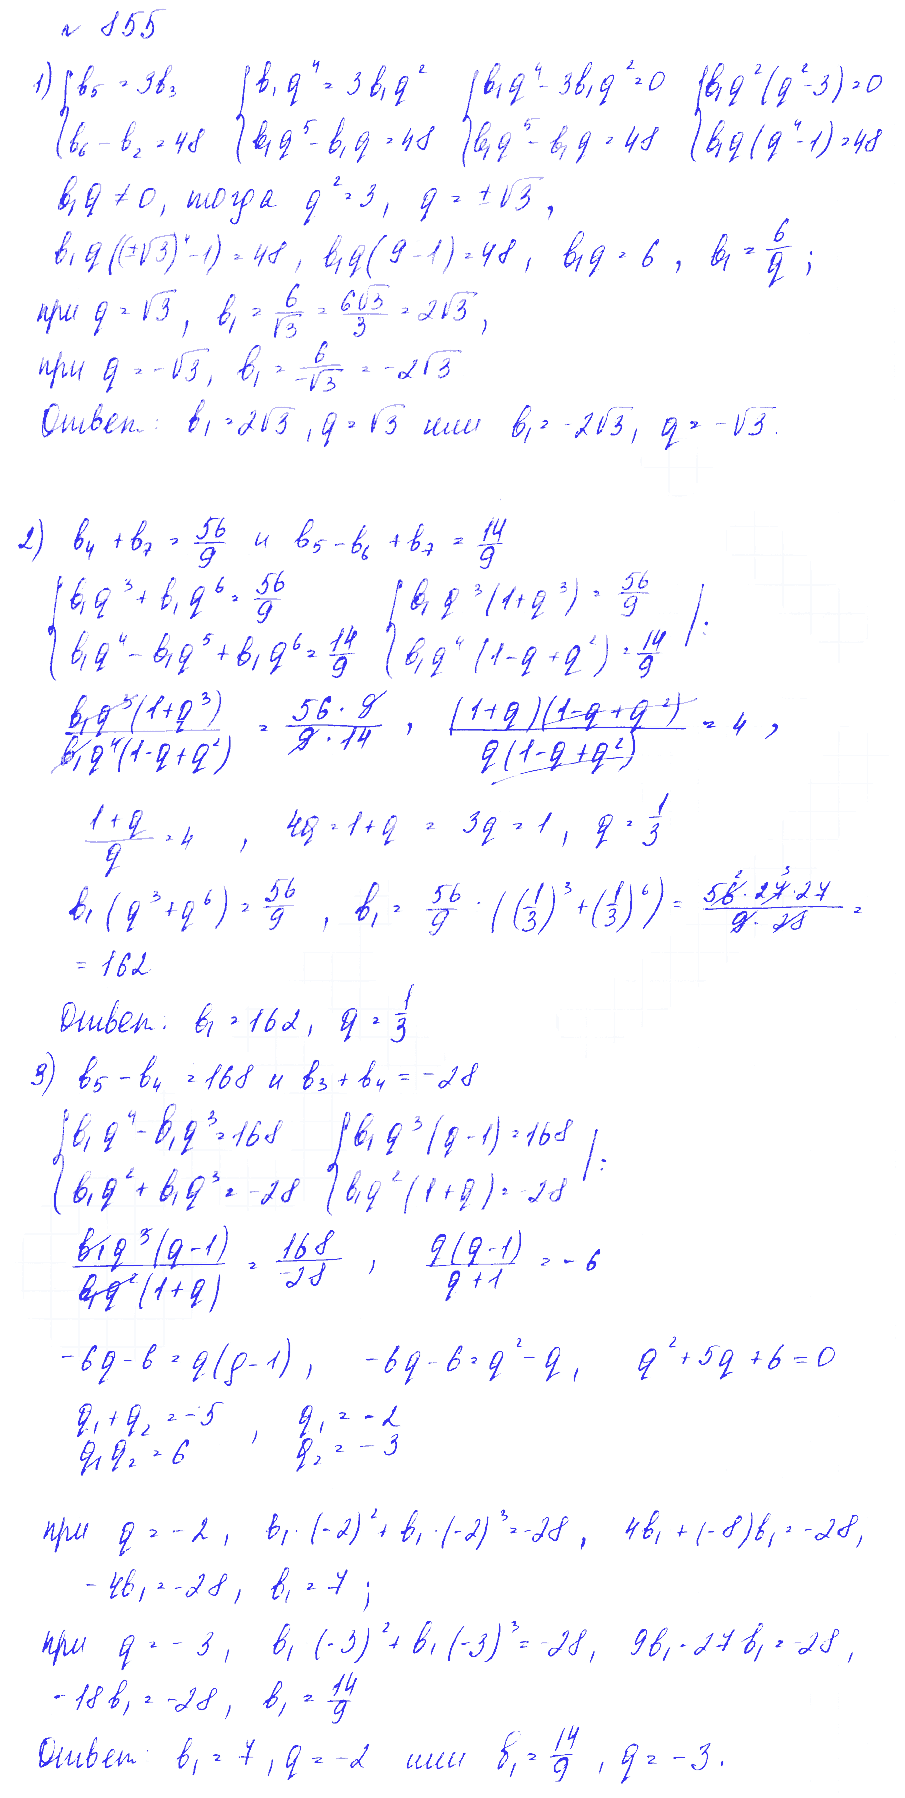 № 855
1) { b₅ = 3b₃ { b₁q⁴ = 3b₁q² { b₁q⁴ - 3b₁q² = 0 { b₁q²(q² - 3) = 0
{ b₆ - b₂ = 48 { b₁q⁵ - b₁q = 48 { b₁q⁵ - b₁q = 48 { b₁q(q⁴ - 1) = 48
b₁q ≠ 0, тогда q² = 3, q = ±√3,
b₁q((±√3)⁴ - 1) = 48, b₁q(9 - 1) = 48, b₁q = 6, b₁ = 6/q;
при q = √3, b₁ = 6/√3 = 6√3/3 = 2√3,
при q = -√3, b₁ = 6/-√3 = -2√3
Ответ: b₁ = 2√3, q = √3 или b₁ = -2√3, q = -√3.
2) b₄ + b₇ = 56/9 и b₅ - b₆ + b₇ = 14/9
{ b₁q³ + b₁q⁶ = 56/9 { b₁q³(1 + q³) = 56/9
{ b₁q⁴ - b₁q⁵ + b₁q⁶ = 14/9 { b₁q⁴(1 - q + q²) = 14/9 | :
b₁q³(1 + q³)/b₁q⁴(1 - q + q²) = 56 · 9/9 · 14, (1 + q)(1 - q + q²)/q(1 - q + q²) = 4,
1 + q/q = 4, 4q = 1 + q = 3q = 1, q = 1/3
b₁(q³ + q⁶) = 56/9, b₁ = 56/9 · ((1/3)³ + (1/3)⁶) = 56 · 27 · 27/9 · 28 =
= 162
Ответ: b₁ = 162, q = 1/3
3) b₅ - b₄ = 168 и b₃ + b₄ = -28
{ b₁q⁴ - b₁q³ = 168 { b₁q³(q - 1) = 168
{ b₁q² + b₁q³ = -28 { b₁q²(1 + q) = -28 | :
b₁q³(q - 1)/b₁q²(1 + q) = 168/-28, q(q - 1)/q + 1 = -6
-6q - 6 = q(q - 1), -6q - 6 = q² - q, q² + 5q + 6 = 0
q₁ + q₂ = -5, q₁ = -2
q₁q₂ = 6 q₂ = -3
при q = -2, b₁ · (-2)² + b₁ · (-2)³ = -28, 4b₁ + (-8)b₁ = -28,
-4b₁ = -28, b₁ = 7;
при q = -3, b₁(-3)² + b₁(-3)³ = -28, 9b₁ - 27b₁ = -28,
-18b₁ = -28, b₁ = 14/9
Ответ: b₁ = 7, q = -2 или b₁ = 14/9, q = -3.